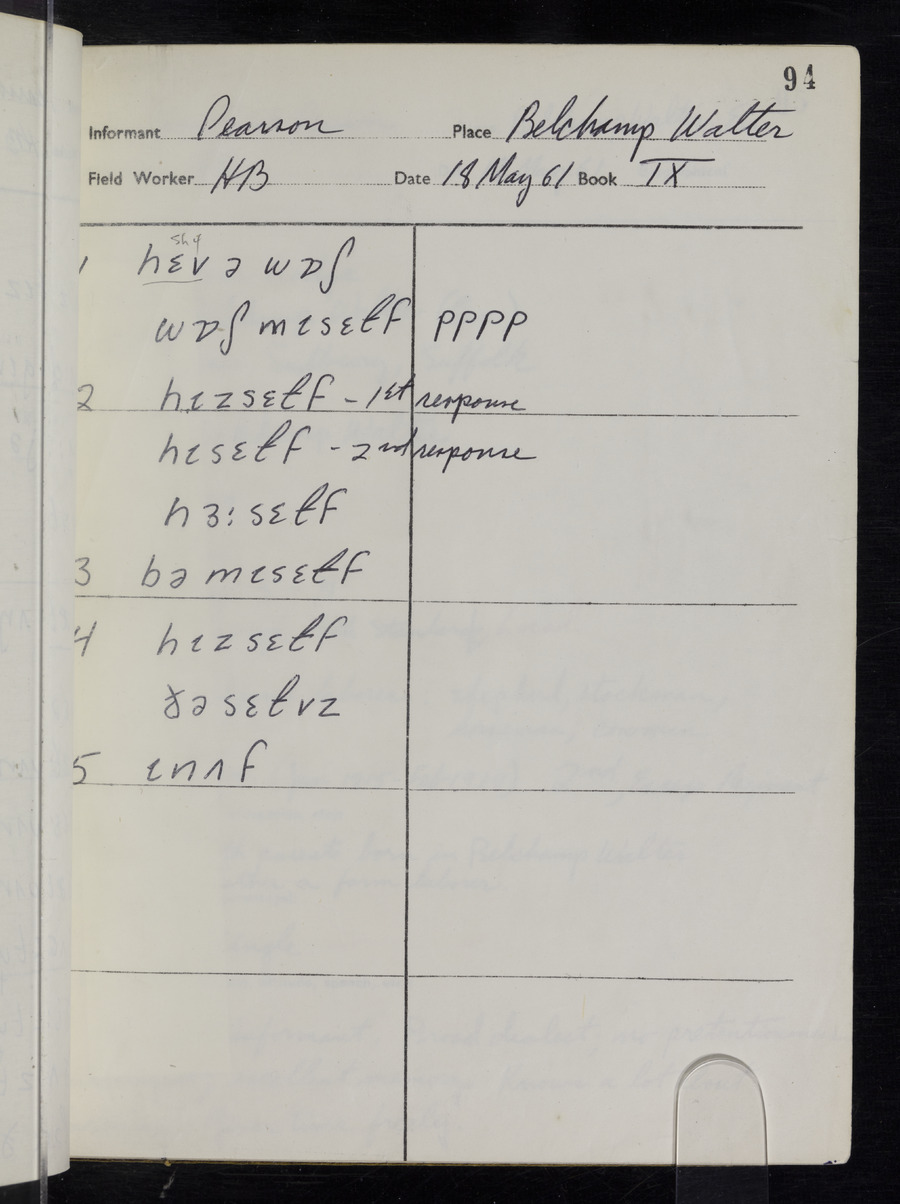 94
Informant Pearson Place Belchamp Walter
Field Worker HB Date 18 May 61 Book IX
1 hɛv ə wɒʃ
wɒʃ mɪsɛɫf pppp
2 hɪzsɛɫf - 1st response
hɪsɛɫf - 2nd response
hɜ:sɛɫf
3 bə mɪsɛɫf
4 hɪzsɛɫf
ðəsɛɫvz
5 ɪnʌf